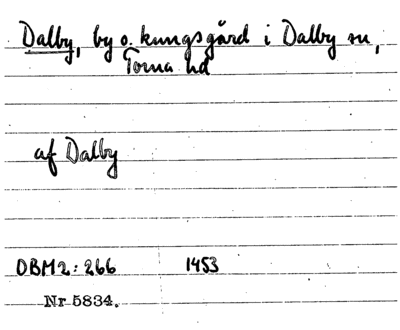 Dalby, by o. kungsgård i Dalby sn,
Torna hd
af Dalby
DBM2: 266 1453
Nr 5834.